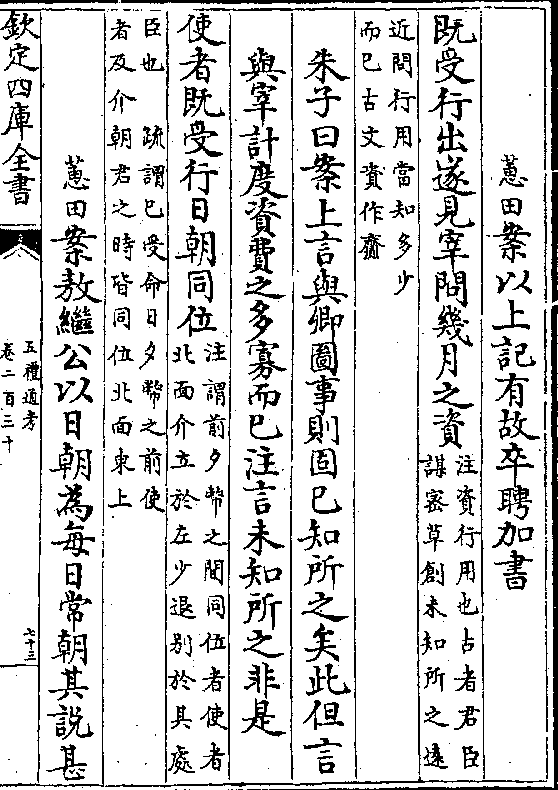 蕙田案以上記有故卒聘加書
既受行出遂見宰問幾月之資
注資行用也古者君臣
謀密草創未知所之遠
近問行用當知多少
而已古文資作齎
朱子曰案上言與卿圖事則固已知所之矣此但言
與宰計度資費之多寡而已注言未知所之非是
使者既受行日朝同位
注謂前夕幣之間同位者使者
北面介立於左少退别於其處
臣也　疏謂已受命日夕幣之前使
者及介朝君之時皆同位北面東上
蕙田案敖繼公以日朝為每日常朝其說甚
欽定四庫全書
五禮通考
卷二百三十
七十三